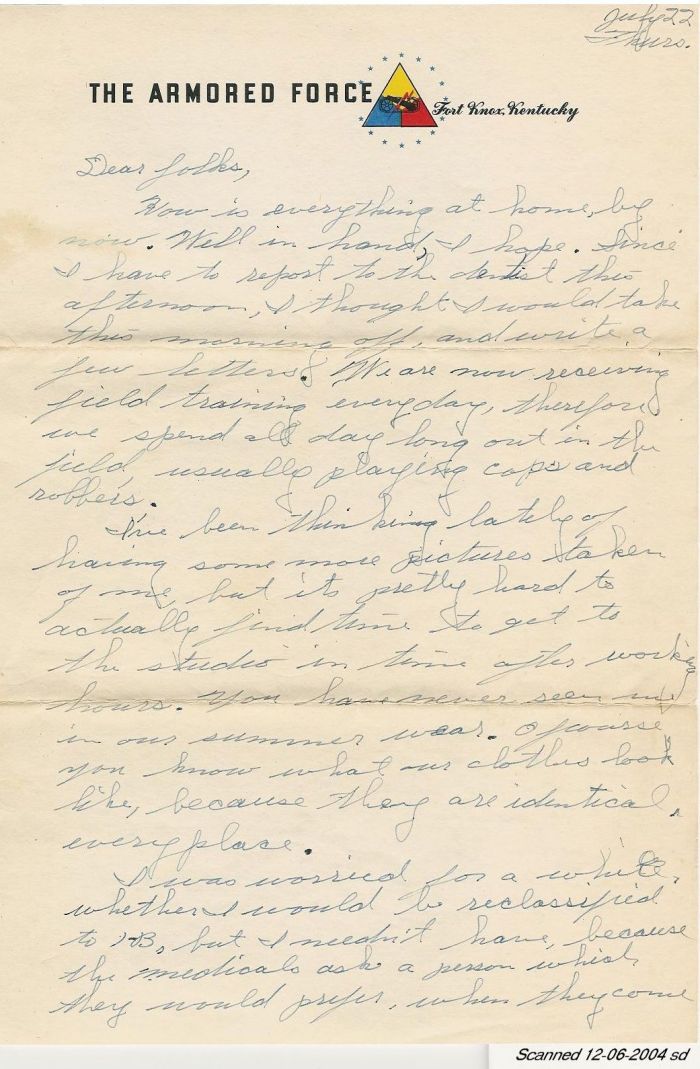 July 22
Thurs.
THE ARMORED FORCE
Fort Knox, Kentucky
Dear folks,
How is everything at home, by
now. Well in hand, I hope. Since
I have to report to the dentist this
afternoon, I thought I would take
this morning off, and write a
few letters. We are now receiving
field training everyday, therefore
we spend all day long out in the
field, usually playing cops and
robbers.
I've been thinking lately of
having some more pictures taken
of me, but its pretty hard to
actually find time to get to
the studio in time after working
hours. You have never seen me
in our summer wear. Of course
you know what our clothes look
like, because they are identical
every place.
I was worried for a while,
whether I would be reclassified
to 1-B, but I needn't have, because
the medicals ask a person which
they would prefer, when they come
Scanned 12-06-2004 sd